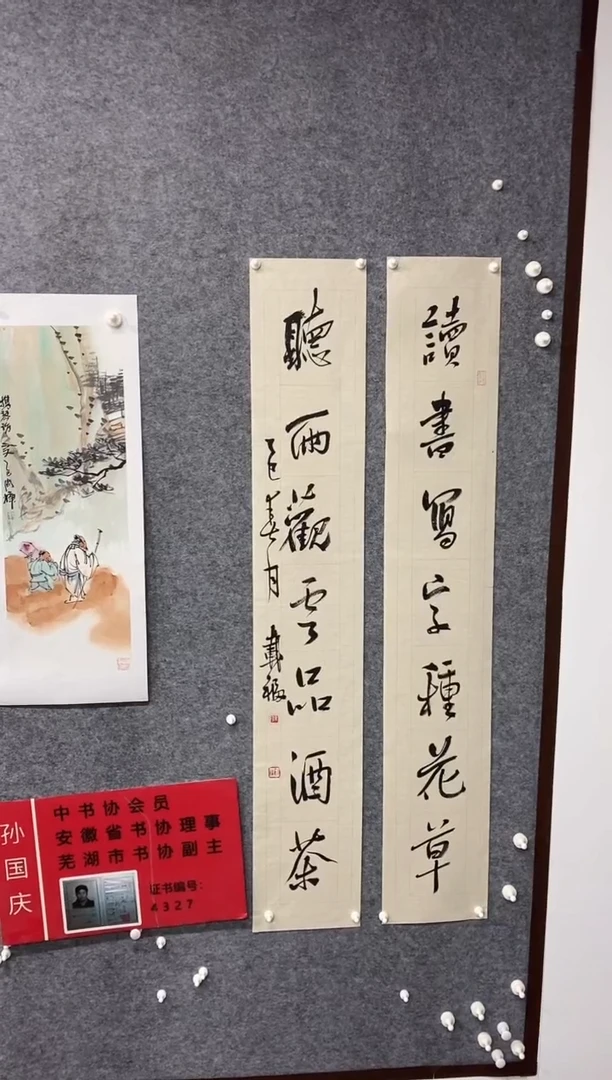 讀書寫字種花草
聽雨觀雲品酒茶
乙巳春月
戴
孙国庆
中书协会员
安徽省书协理事
芜湖市书协副主
证书编号：
4327